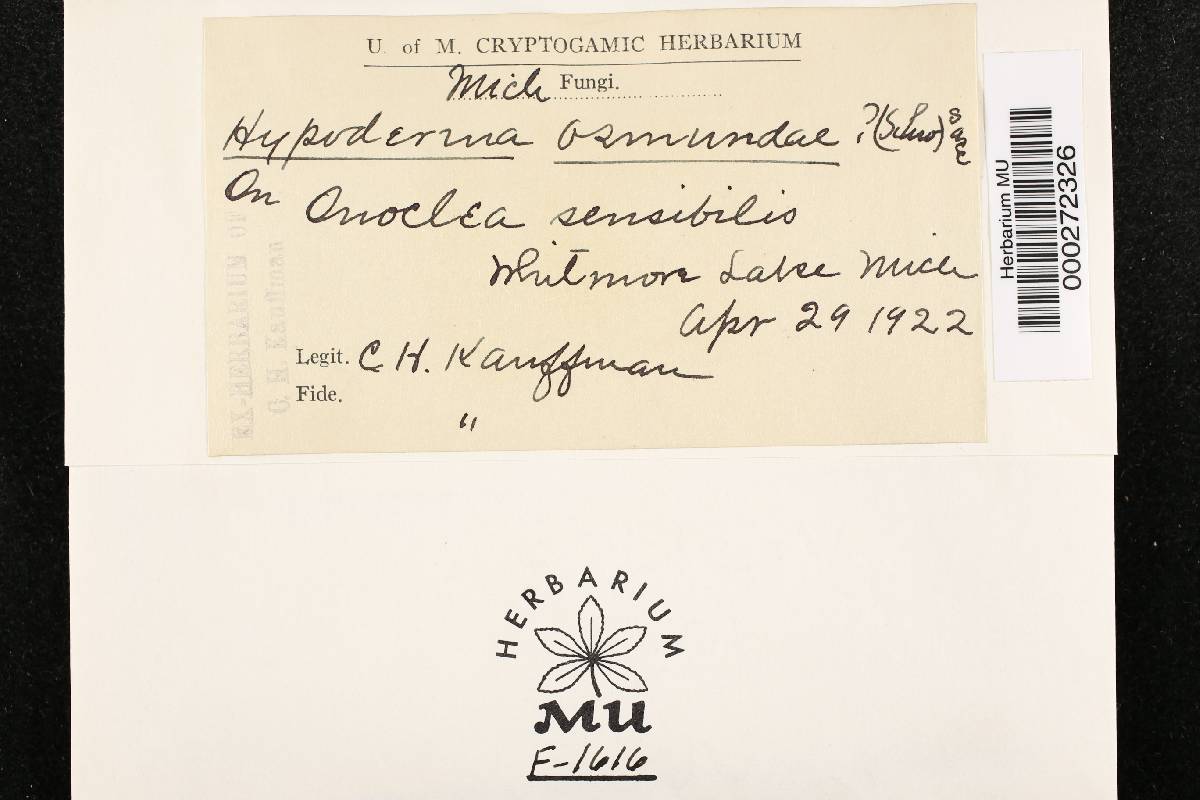 U. of M. CRYPTOGAMIC HERBARIUM
Mich Fungi.
Hypoderma osmundae ?(Schw) Sacc
On Onoclea sensibilis
Whitmore Lake Mich
Apr 29 1922
Legit. C H. Kauffman
Fide. "
EX-HERBARIUM OF
C. H. Kauffman
Herbarium MU
000272326
HERBARIUM
MU
F-1616